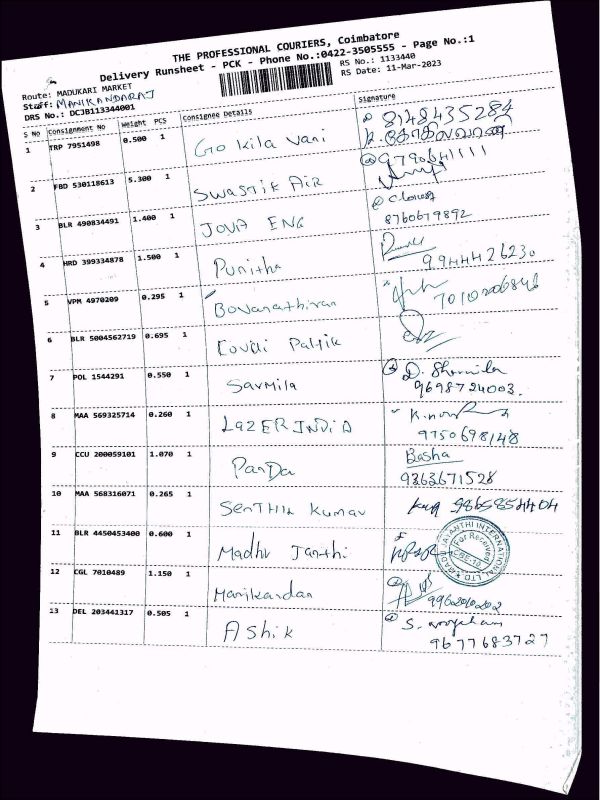 THE PROFESSIONAL COURIERS, Coimbatore
Delivery Runsheet - PCK - Phone No.:0422-3505555 - Page No.:1
Route: MADUKARI MARKET
RS No.: 1133440
Staff: MANIKANDARAJ
RS Date: 11-Mar-2023
DRS No.: DCJB113344001
S No Consignment No Weight PCS Consignee Details Signature
1 TRP 7951498 0.500 1 Gokila vani 8148435284
கோகிலவாணி
2 FBD 530118613 5.300 1 SWASTIK AIR 9790641111
3 BLR 490834491 1.400 1 JOVA ENG
8760679892
4 HRD 399334878 1.500 1 Punitha
9944426230
5 VPM 4970209 0.295 1 Bovanathiran 7010206846
6 BLR 5004562719 0.695 1
7 POL 1544291 0.550 1 Sarmila D. Sharmila
9698724003.
8 MAA 569325714 0.260 1 LAZER INDIA
9750698148
9 CCU 200059101 1.070 1 PanDa Basha
9363671528
10 MAA 568316071 0.265 1 SenTHIL Kumar 9865854404
11 BLR 4450453400 0.600 1 Madhu Janthi
MADHU JAYANTHI INTERNATIONAL LTD.
For Received
CBE-10
12 CGL 7010489 1.150 1 Manikandan
9962010202
13 DEL 203441317 0.505 1 Ashik S.
9677683727